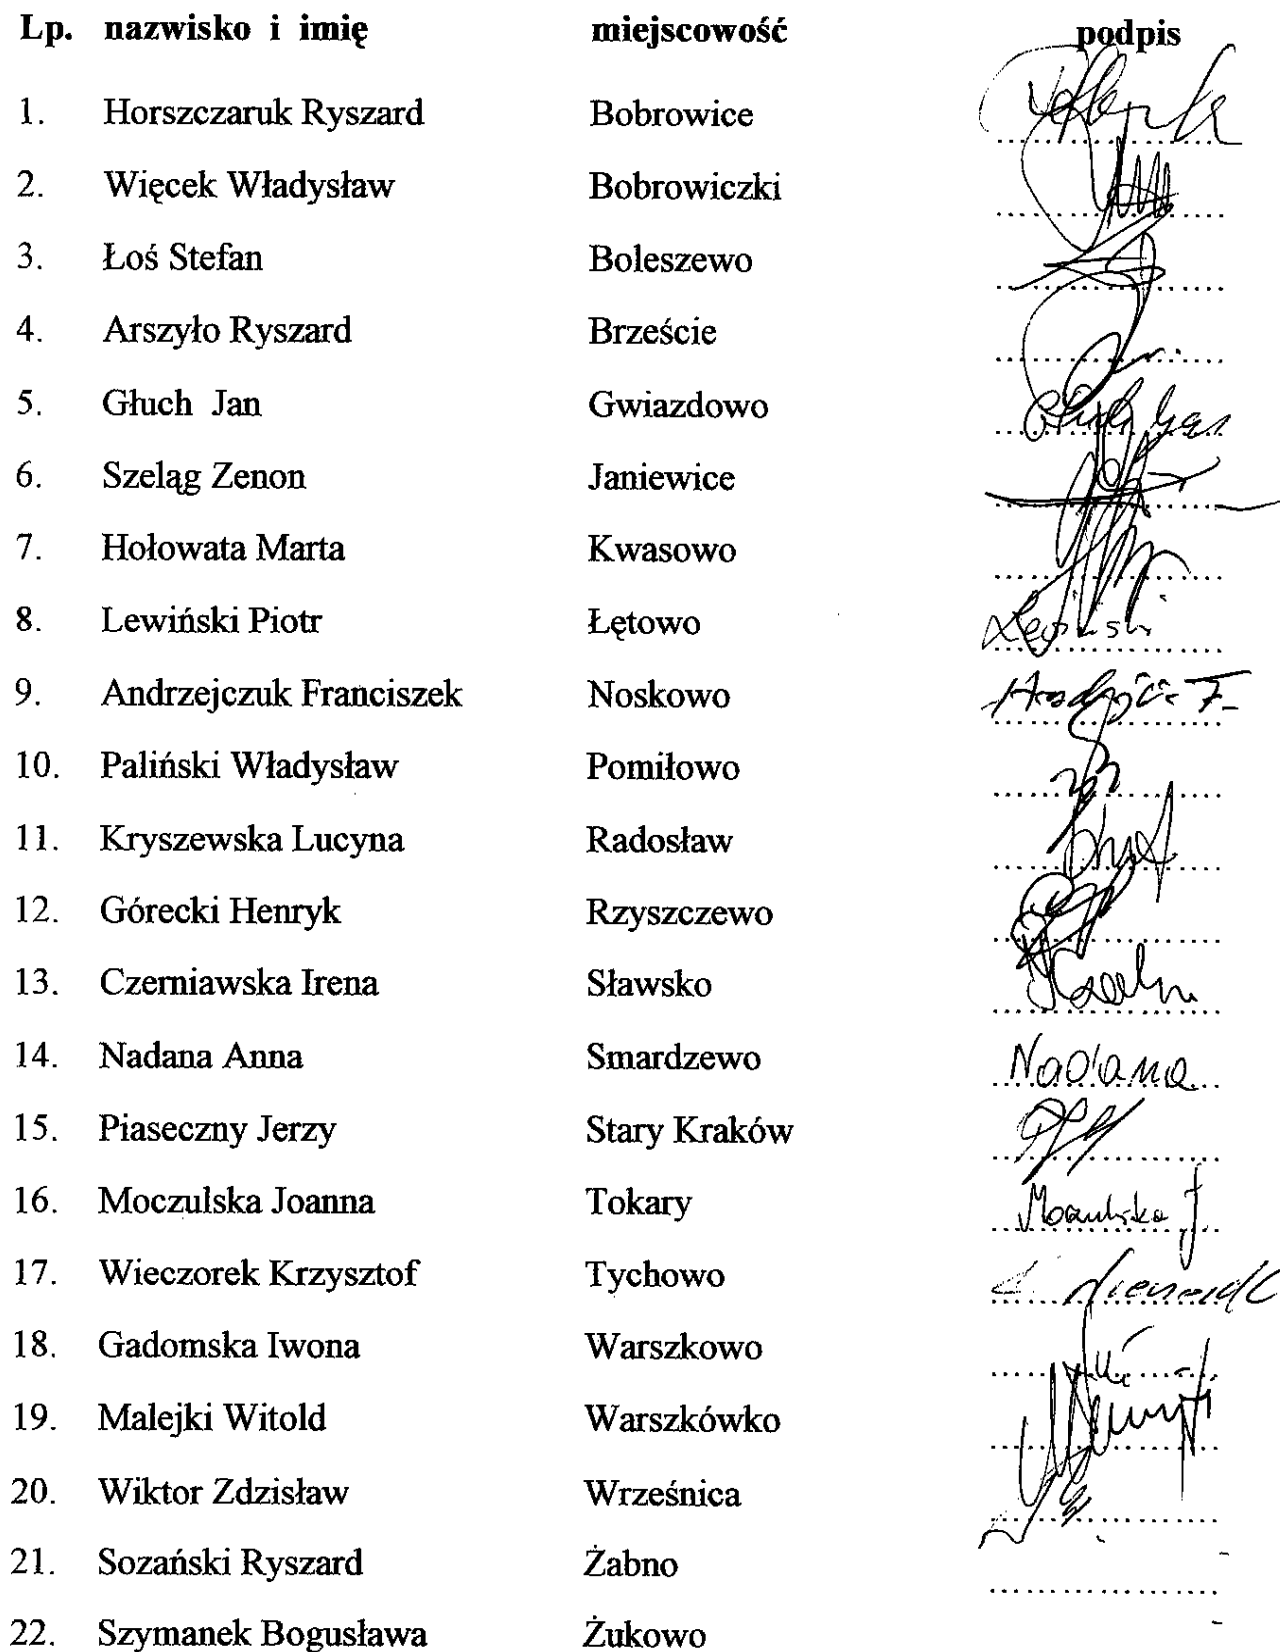 Lp. nazwisko i imię miejscowość podpis
1. Horszczaruk Ryszard Bobrowice
2. Więcek Władysław Bobrowiczki
3. Łoś Stefan Boleszewo
4. Arszyło Ryszard Brzeście
5. Głuch Jan Gwiazdowo Głuch Jan
6. Szeląg Zenon Janiewice
7. Hołowata Marta Kwasowo
8. Lewiński Piotr Łętowo Lewiński
9. Andrzejczuk Franciszek Noskowo
10. Paliński Władysław Pomiłowo
11. Kryszewska Lucyna Radosław
12. Górecki Henryk Rzyszczewo
13. Czerniawska Irena Sławsko
14. Nadana Anna Smardzewo Nadana
15. Piaseczny Jerzy Stary Kraków
16. Moczulska Joanna Tokary Moczulska J.
17. Wieczorek Krzysztof Tychowo
18. Gadomska Iwona Warszkowo
19. Malejki Witold Warszkówko
20. Wiktor Zdzisław Wrześnica
21. Sozański Ryszard Żabno
22. Szymanek Bogusława Żukowo